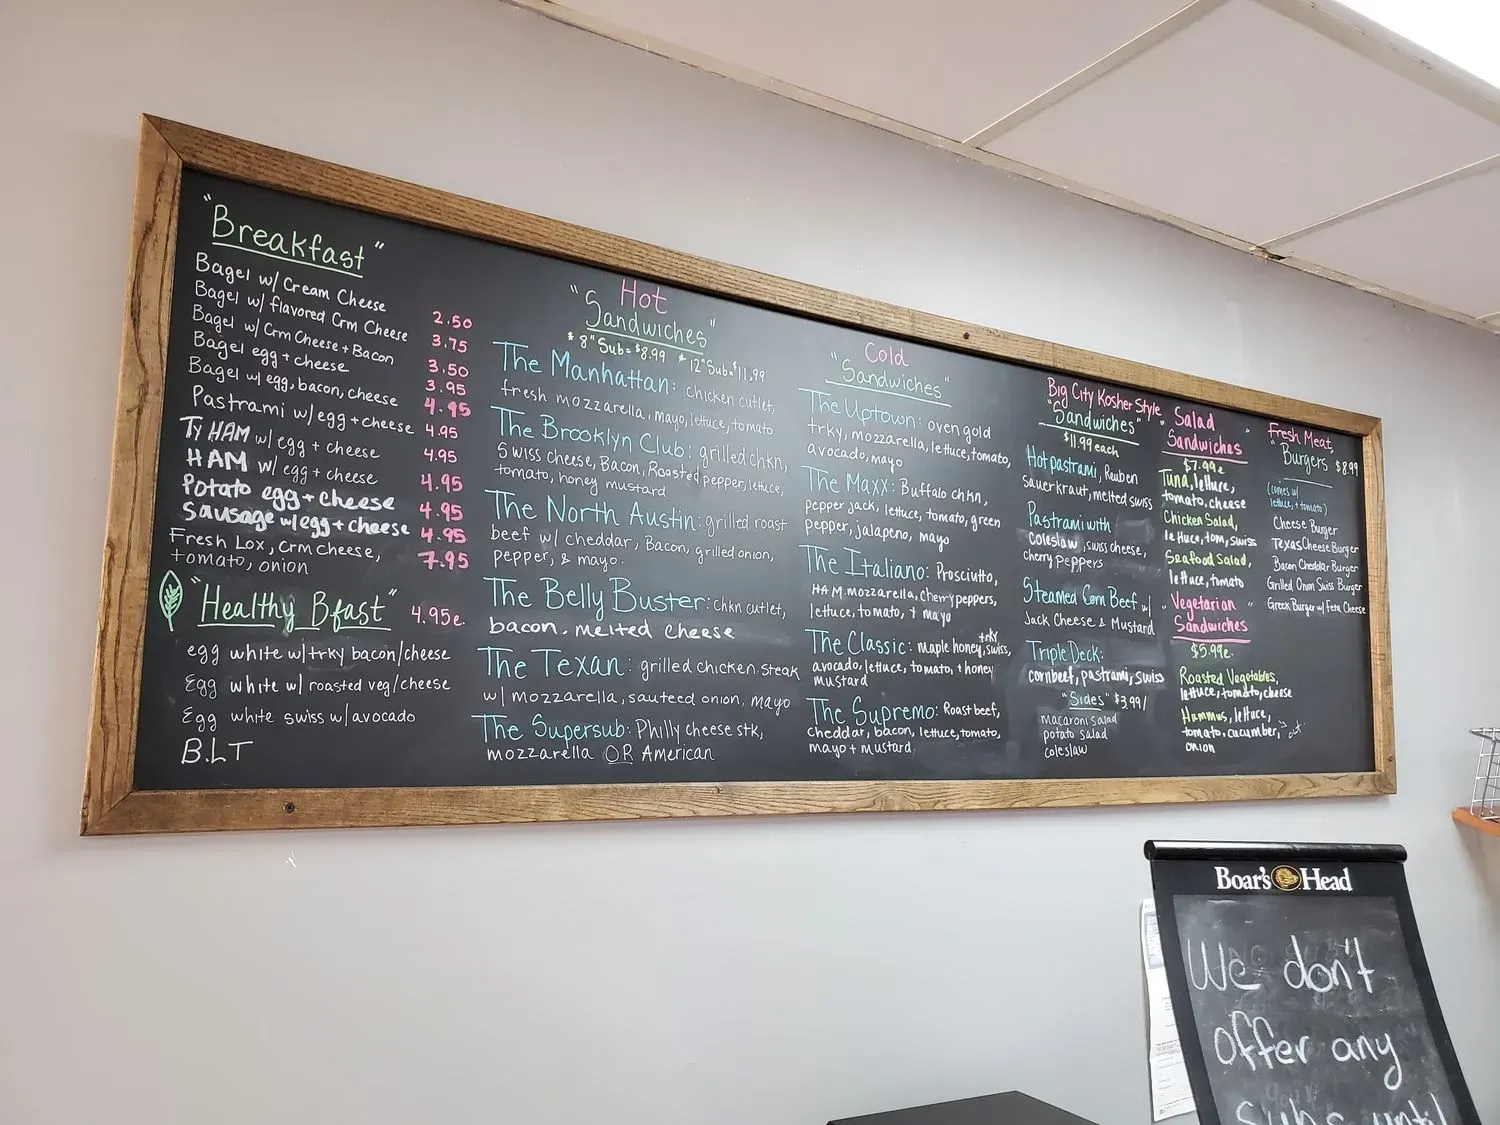 "Breakfast"
Bagel w/ Cream Cheese 2.50
Bagel w/ flavored Crm Cheese 3.75
Bagel w/ Crm Cheese + Bacon 3.50
Bagel egg + cheese 3.95
Bagel w/ egg, bacon, cheese 4.95
Pastrami w/ egg + cheese 4.95
Ty HAM w/ egg + cheese 4.95
HAM w/ egg + cheese 4.95
Potato egg + cheese 4.95
Sausage w/ egg + cheese 4.95
Fresh Lox, crm cheese, 7.95
tomato, onion
"Healthy Bfast" 4.95e.
egg white w/ trky bacon/cheese
Egg white w/ roasted veg/cheese
Egg white swiss w/ avocado
B.LT
"Hot
Sandwiches"
* 8" Sub = $8.99 * 12" Sub = $11.99
The Manhattan: chicken cutlet,
fresh mozzarella, mayo, lettuce, tomato
The Brooklyn Club: grilled chkn,
Swiss cheese, Bacon, Roasted pepper, lettuce,
tomato, honey mustard
The North Austin: grilled roast
beef w/ cheddar, Bacon, grilled onion,
pepper, & mayo.
The Belly Buster: chkn cutlet,
bacon, melted cheese
The Texan: grilled chicken steak
w/ mozzarella, sauteed onion, mayo
The Supersub: Philly cheese stk,
mozzarella OR American
Cold
"Sandwiches"
The Uptown: oven gold
trky, mozzarella, lettuce, tomato,
avocado, mayo
The Maxx: Buffalo chkn,
pepper jack, lettuce, tomato, green
pepper, jalapeno, mayo
The Italiano: Prosciutto,
HAM, mozzarella, cherry peppers,
lettuce, tomato, + mayo
The Classic: maple honey trky, swiss,
avocado, lettuce, tomato, + honey
mustard
The Supremo: Roast beef,
cheddar, bacon, lettuce, tomato,
mayo + mustard
Big City Kosher Style
"Sandwiches"
$11.99 each
Hot pastrami, Reuben
Sauerkraut, melted swiss
Pastrami with
coleslaw, swiss cheese,
cherry peppers
Steamed Corn Beef w/
Jack Cheese & Mustard
Triple Deck:
cornbeef, pastrami, swiss
"Sides" $3.99/
macaroni salad
potato salad
coleslaw
"Salad
Sandwiches"
$7.99e
Tuna, lettuce,
tomato, cheese
Chicken Salad,
lettuce, tom, swiss
Seafood Salad,
lettuce, tomato
"Vegetarian
Sandwiches"
$5.99e.
Roasted Vegetables,
lettuce, tomato, cheese
Hummus, lettuce,
tomato, cucumber, out
onion
Fresh Meat,
Burgers $8.99
(comes w/
lettuce, + tomato)
Cheese Burger
Texas Cheese Burger
Bacon Cheddar Burger
Grilled Onion Swiss Burger
Greek Burger w/ Feta Cheese
Boar's Head
We don't
offer any
subs until